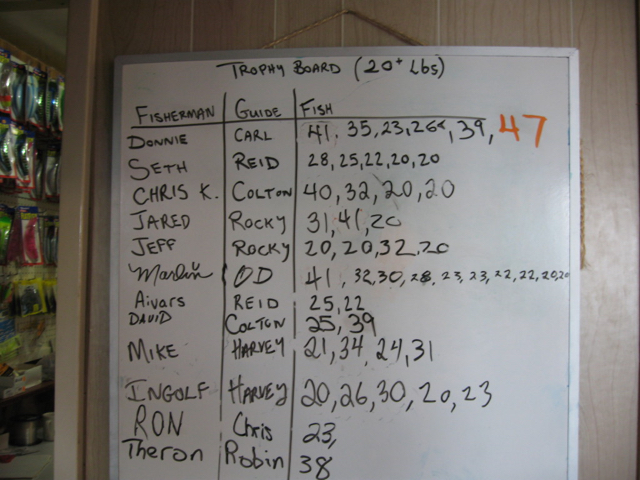 TROPHY BOARD (20+ Lbs)
FISHERMAN GUIDE FISH
DONNIE CARL 41, 35, 23, 26, 39, 47
SETH REID 28, 25, 22, 20, 20
CHRIS K. COLTON 40, 32, 20, 20
JARED ROCKY 31, 41, 20
JEFF ROCKY 20, 20, 32, 20
Marlin OD 41, 32, 30, 28, 23, 23, 22, 22, 20, 20
Aivars REID 25, 22
DAVID COLTON 25, 39
MIKE HARVEY 21, 34, 24, 31
INGOLF HARVEY 20, 26, 30, 20, 23
RON Chris 23,
Theron Robin 38